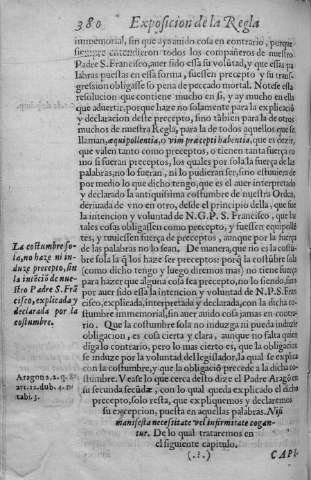 380 Exposicion de la Regla
immemorial, sin que aya auido cosa en contrario, porque
siempre entendieron todos los compañeros de nuestro
Padre S. Francisco, auer sido essa su volũtad, y que essas pa
labras puestas en essa forma, fuessen precepto y su trans
gression obligasse so pena de peccado mortal. Notese esta
resolucion que contiene mucho en si, y ay mucho en ella
que aduertir, porque haze no solamente para la explicaciõ
y declaracion deste precepto, sino tãbien para la de otros
muchos de nuestra Regla, para la de todos aquellos que se
llaman, æquipollentia, o vim præcepti habentia, que es dezir,
que valen tanto como preceptos, o tienen tanta fuerça co
mo si fueran preceptos, los quales por sola la fuerça de las
palabras, no lo fueran, ni lo pudieran ser, sino estuuierẽ de
por medio lo que dicho tengo, que es el auer interpretado
y declarando la antiquissima costumbre de nuestra Ordẽ,
deriuada de vno en otro, desde el principio della, que fue
la intencion y voluntad de N. G. P. S. Francisco, que las
tales cosas obligassen como precepto, y fuessen equipollẽ
tes, y tuuiessen fuerça de preceptos, aunque por la fuerça
de las palabras no lo sean. De manera, que no es la costũ-
bre sola la q̃ los haze ser preceptos: porq̃ la costũbre sola
(como dicho tengo y luego diremos mas) no tiene fuerça
para hazer que alguna cosa sea precepto, no lo siendo, sino
por auer sido essa la intencion y voluntad de N. P. S. Fran
cisco, explicada, interpretada y declarada, con la dicha co
stumbre immemorial, sin auer auido cosa jamas en contra
rio. Que la costumbre sola no induzga ni pueda induzir
obligacion, es cosa cierta y clara, aunque no falta quien
diga lo contrario, pero lo mas cierto es, que la obligacion
se induze por la voluntad del legislador, la qual se explica
con la costumbre, y que la obligaciõ precede a la dicha co
stumbre. Y esto lo que cerca desto dize el Padre Aragõ en
su secunda secundæ, con lo qual queda explicado el dicho
precepto, solo resta, que expliquemos y declaremos
su excepcion, puesta en aquellas palabras. Nisi
manifesta necessitate vel infirmitate cogan-
tur. De lo qual trataremos en
el siguiente capitulo.
(.?.) CAPI-
La costumbre so-
la, no haze ni in-
duze precepto, sin
la intẽciõ de nue-
stro Padre S. Frã
cisco, explicada y
declarada por la
costumbre.
Aragon 2.2. q.
art. 12. dub. 4.